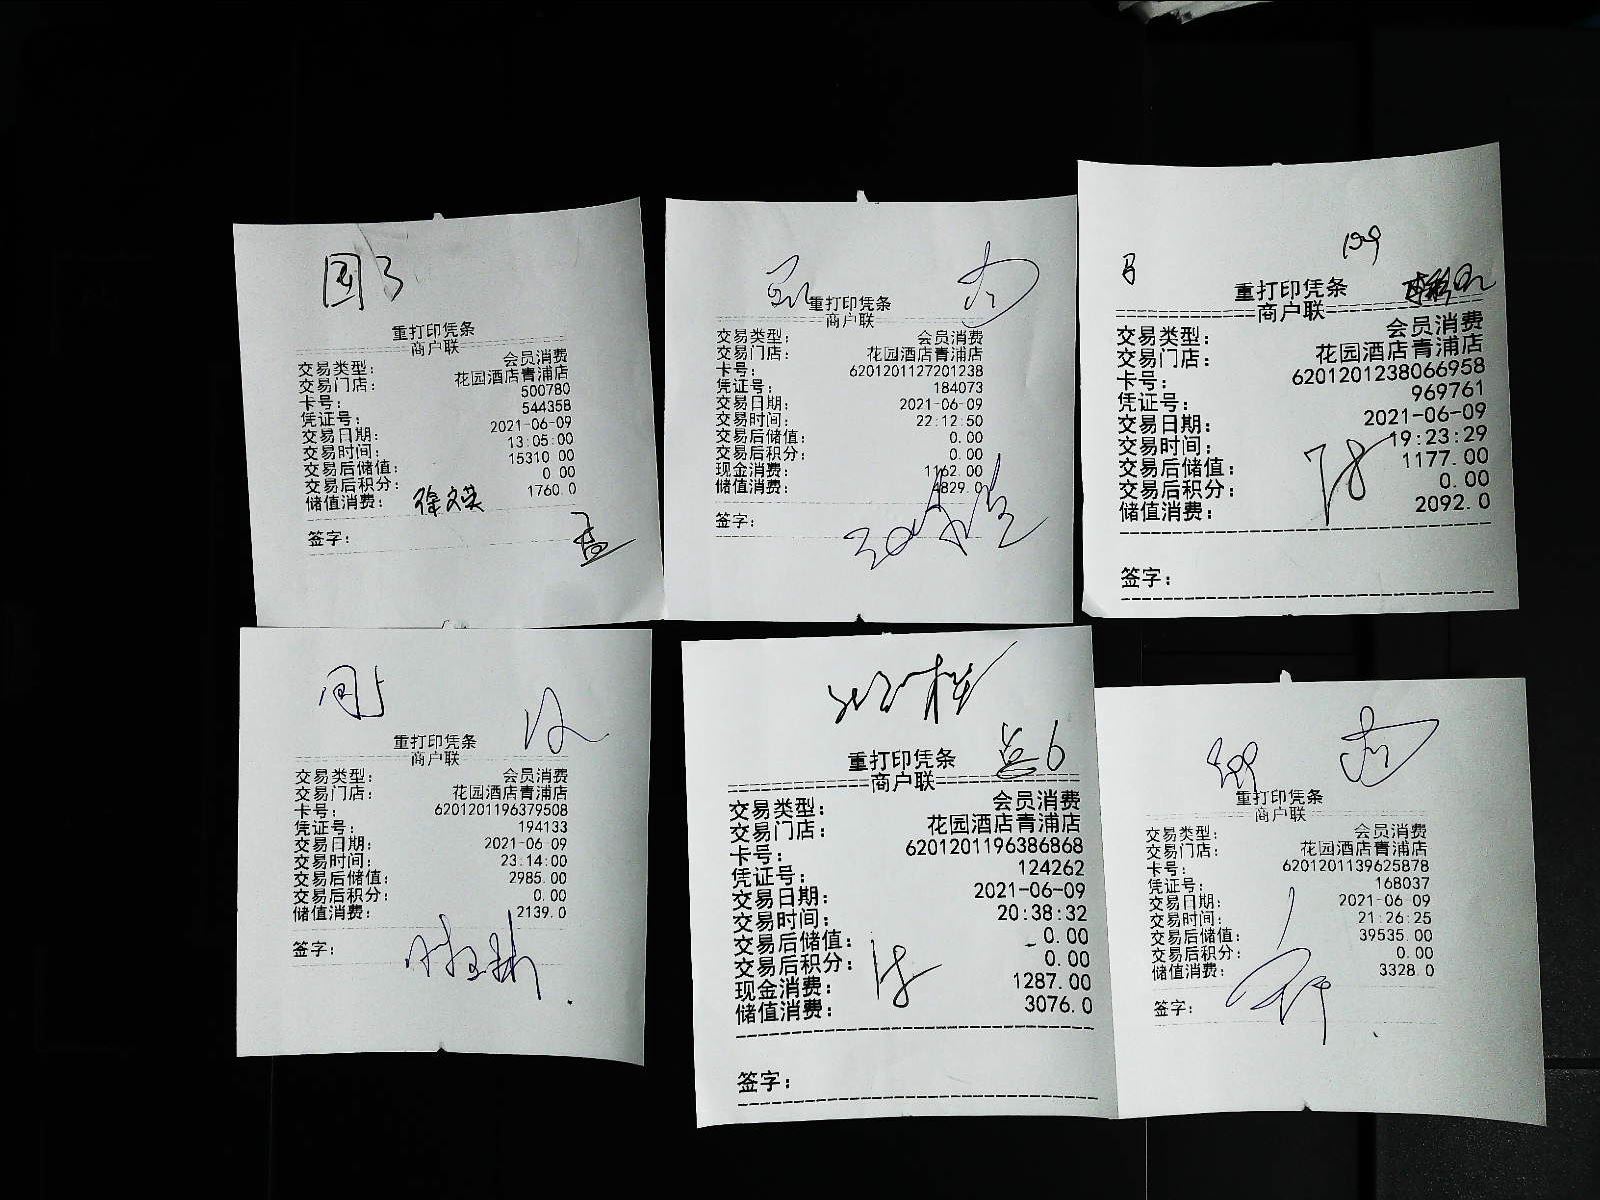 重打印凭条
商户联
交易类型: 会员消费
交易门店: 花园酒店青浦店
卡号: 500780
凭证号: 544358
交易日期: 2021-06-09
交易时间: 13:05:00
交易后储值: 15310.00
交易后积分: 0.00
储值消费: 1760.0
徐文英
签字:
孟
重打印凭条
商户联
交易类型: 会员消费
交易门店: 花园酒店青浦店
卡号: 6201201127201238
凭证号: 184073
交易日期: 2021-06-09
交易时间: 22:12:50
交易后储值: 0.00
交易后积分: 0.00
现金消费: 1162.00
储值消费: 4829.0
签字:
重打印凭条
商户联
交易类型: 会员消费
交易门店: 花园酒店青浦店
卡号: 6201201238066958
凭证号: 969761
交易日期: 2021-06-09
交易时间: 19:23:29
交易后储值: 1177.00
交易后积分: 0.00
储值消费: 2092.0
签字:
重打印凭条
商户联
交易类型: 会员消费
交易门店: 花园酒店青浦店
卡号: 6201201196379508
凭证号: 194133
交易日期: 2021-06-09
交易时间: 23:14:00
交易后储值: 2985.00
交易后积分: 0.00
储值消费: 2139.0
签字:
重打印凭条
商户联
交易类型: 会员消费
交易门店: 花园酒店青浦店
卡号: 6201201196386868
凭证号: 124262
交易日期: 2021-06-09
交易时间: 20:38:32
交易后储值: 0.00
交易后积分: 0.00
现金消费: 1287.00
储值消费: 3076.0
签字:
重打印凭条
商户联
交易类型: 会员消费
交易门店: 花园酒店青浦店
卡号: 6201201139625878
凭证号: 168037
交易日期: 2021-06-09
交易时间: 21:26:25
交易后储值: 39535.00
交易后积分: 0.00
储值消费: 3328.0
签字: